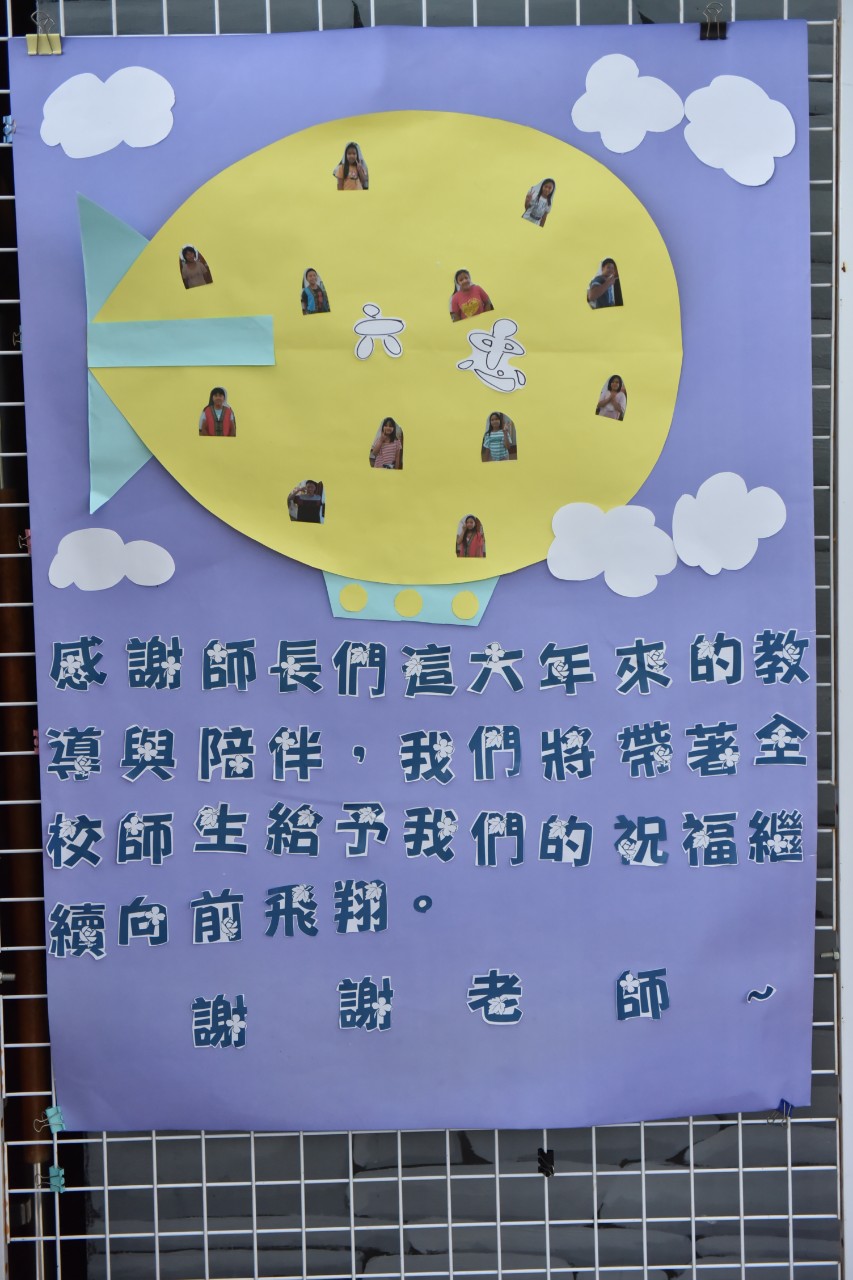 六忠
感謝師長們這六年來的教
導與陪伴，我們將帶著全
校師生給予我們的祝福繼
續向前飛翔。
謝謝老師~